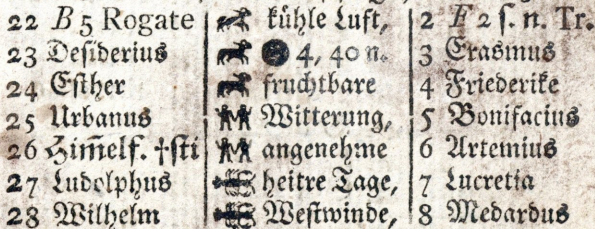 22 B 5 Rogate kühle Luft, 2 F 2 ſ. n. Tr.
23 Deſiderius 4, 40 n. 3 Erasmus
24 Eſther fruchtbare 4 Friederike
25 Urbanus Witterung, 5 Bonifacius
26 Him̅elf. †ſti angenehme 6 Artemius
27 Ludolphus heitre Tage, 7 Lucretia
28 Wilhelm Weſtwinde, 8 Medardus